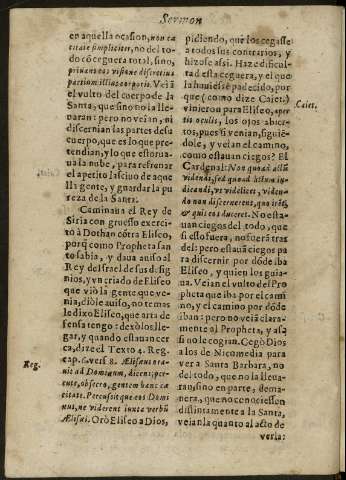 Sermon
en aquella ocasion, non cæ
citate simpliciter, no del to-
do cõ ceguera total, sino,
priuans eos visione discretiua
partium illius corporis. Veiã
el vulto del cuerpo de la
Santa, que sino no la lle
uaran: pero no veían, ni
discernian las partes de su
cuerpo, que es lo que pre-
tendian, y lo que estorua-
ua la nube, para refrenar
el apetito lasciuo de aque
lla gente, y guardar la pu
reza de la Santa.
Caminaua el Rey de
Siria con gruesso exerci-
tò à Dothan cõtra Eliseo,
porq̃ como Propheta san
to sabia, y daua auiso al
Rey del Israel de sus desig
nios, y vn criado de Eliseo
que viò la gente que ve-
nia, diòle auiso, no temas
le dixo Eliseo, que arta de
fensa tengo: dexòlos lle-
gar, y quando estauan cer
ca, dize el Texto 4. Reg.
cap. 6. vers. 8. Ælisæus ora-
uit ad Dominum, dicens; per-
cute, obsecro, gentem hanc cæ
citate. Percussit que eos Domi
nus, ne viderent iuxta verbũ
Ælisæi. Orò Eliseo a Dios,
Reg.
pidiendo, que los cegasse
a todos sus contrarios, y
hizose assi. Haze dificul-
tad esta ceguera, y el que
la huuiesse padecido, por
que (como dize Caiet.)
vinieron para Eliseo, aper-
tis oculis, los ojos abier-
tos, pues si venian, siguiẽ-
dole, y veían el camino,
como estauan ciegos? El
Cardenal: Non quoad actũ
videndi, sed quoad actum in-
dicandi, vt videlicet, viden-
do non discernerent, quo irẽt,
& quis eos duceret. No esta-
uan ciegos del todo, que
si esto fuera, no fuera tras
del: pero estauã ciegos pa
ra discernir por dõde iba
Eliseo, y quien los guia-
ua. Veían el vulto del Pro
pheta que iba por el cami
no, y el camino por dõde
iban: pero no veiã clara-
mente al Propheta, y assi
si no le cogian. Cegò Dios
a los de Nicomedia para
ver a Santa Barbara, no
del todo, que no la lleua-
ran, sino en parte, de ma-
nera, que no conociessen
distintamente a la Santa,
veían la quanto al acto de
Caiet.
verla: